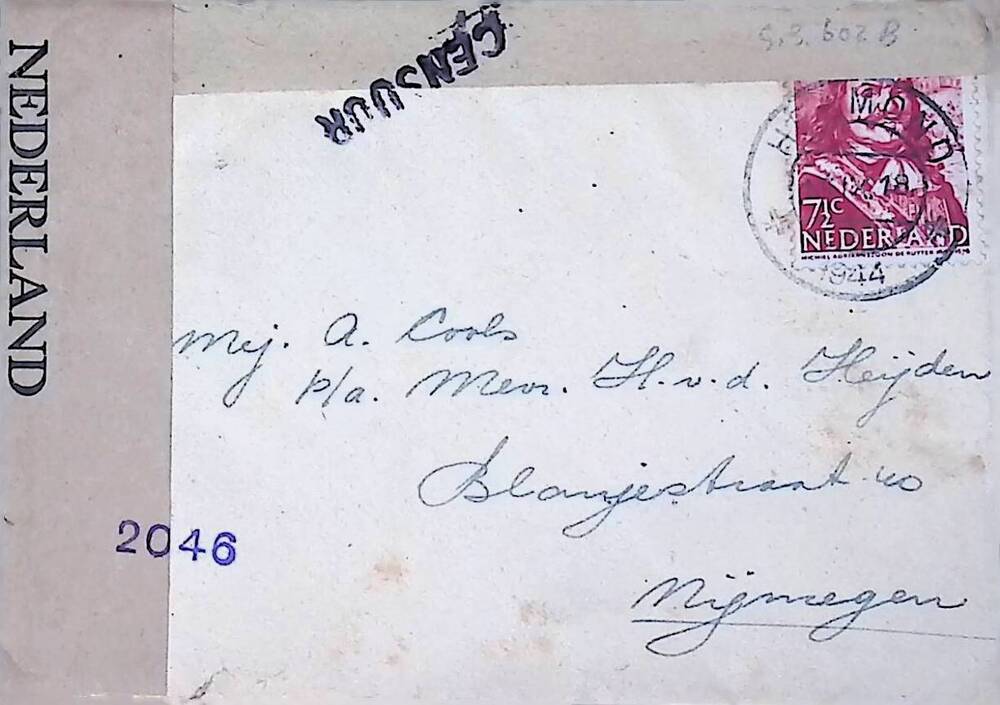 NEDERLAND
CENSUUR
7½c
NEDERLAND
MICHIEL ADRIAENSZOON DE RUYTER
18
1944
Mej. A. Cools
p/a. Mevr. H. v. d. Heijden
Blanjestraat 40
Nijmegen
2046